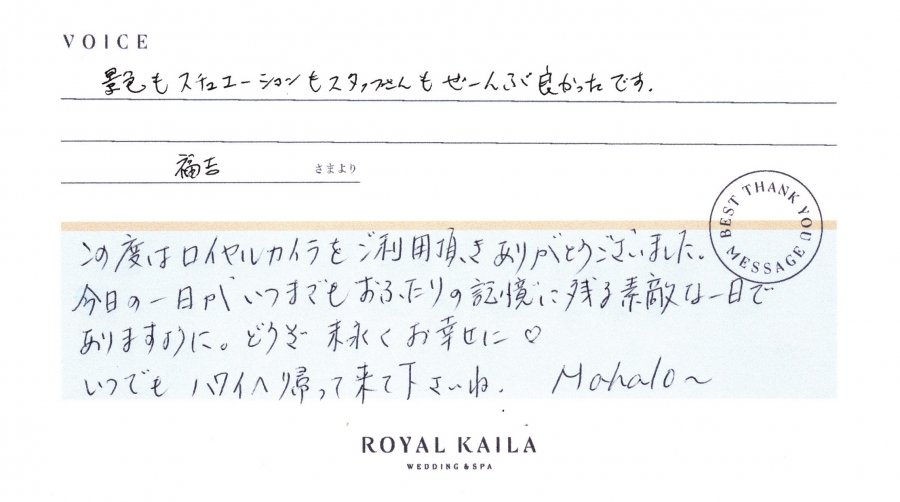 VOICE
景色もスチュエーションもスタッフさんもぜーんぶ良かったです.
福吉 さまより
BEST THANK YOU MESSAGE
この度はロイヤルカイラをご利用頂きありがとうございました.
今日の一日がいつまでもおふたりの記憶に残る素敵な一日で
ありますように。どうぞ末永くお幸せに♡
いつでもハワイへ帰って来て下さいね. Mahalo~
ROYAL KAILA
WEDDING & SPA